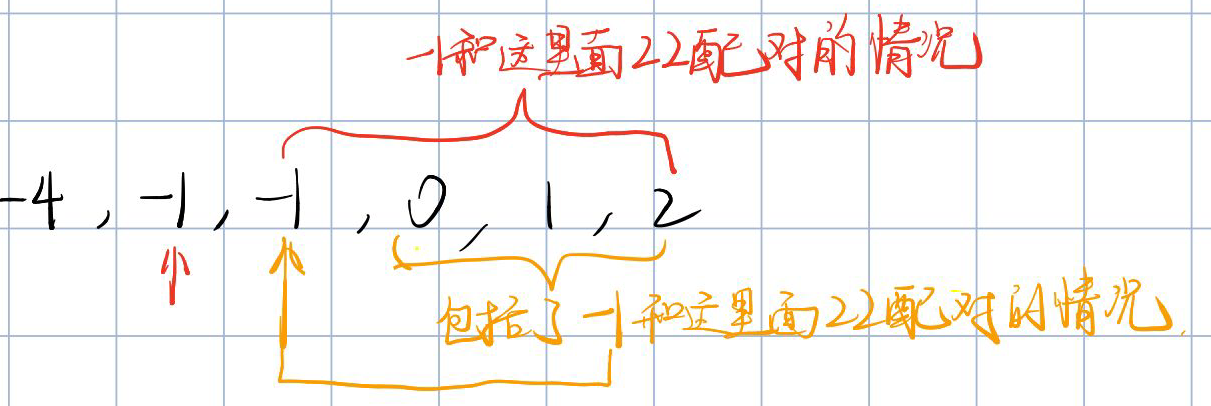 -1和这里面22配对的情况
-4, -1, -1, 0, 1, 2
包括了-1和这里面22配对的情况.